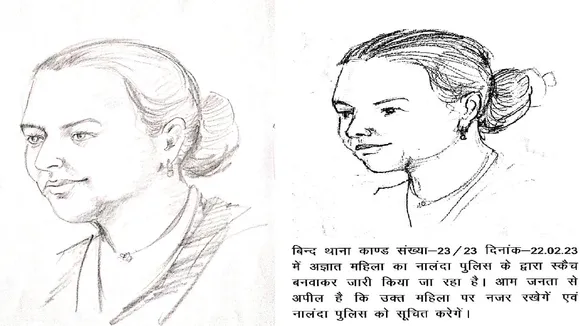 बिन्द थाना काण्ड संख्या–23/23 दिनांक–22.02.23
में अज्ञात महिला का नालंदा पुलिस के द्वारा स्कैच
बनवाकर जारी किया जा रहा है। आम जनता से
अपील है कि उक्त महिला पर नजर रखेगें एवं
नालंदा पुलिस को सूचित करेगें।